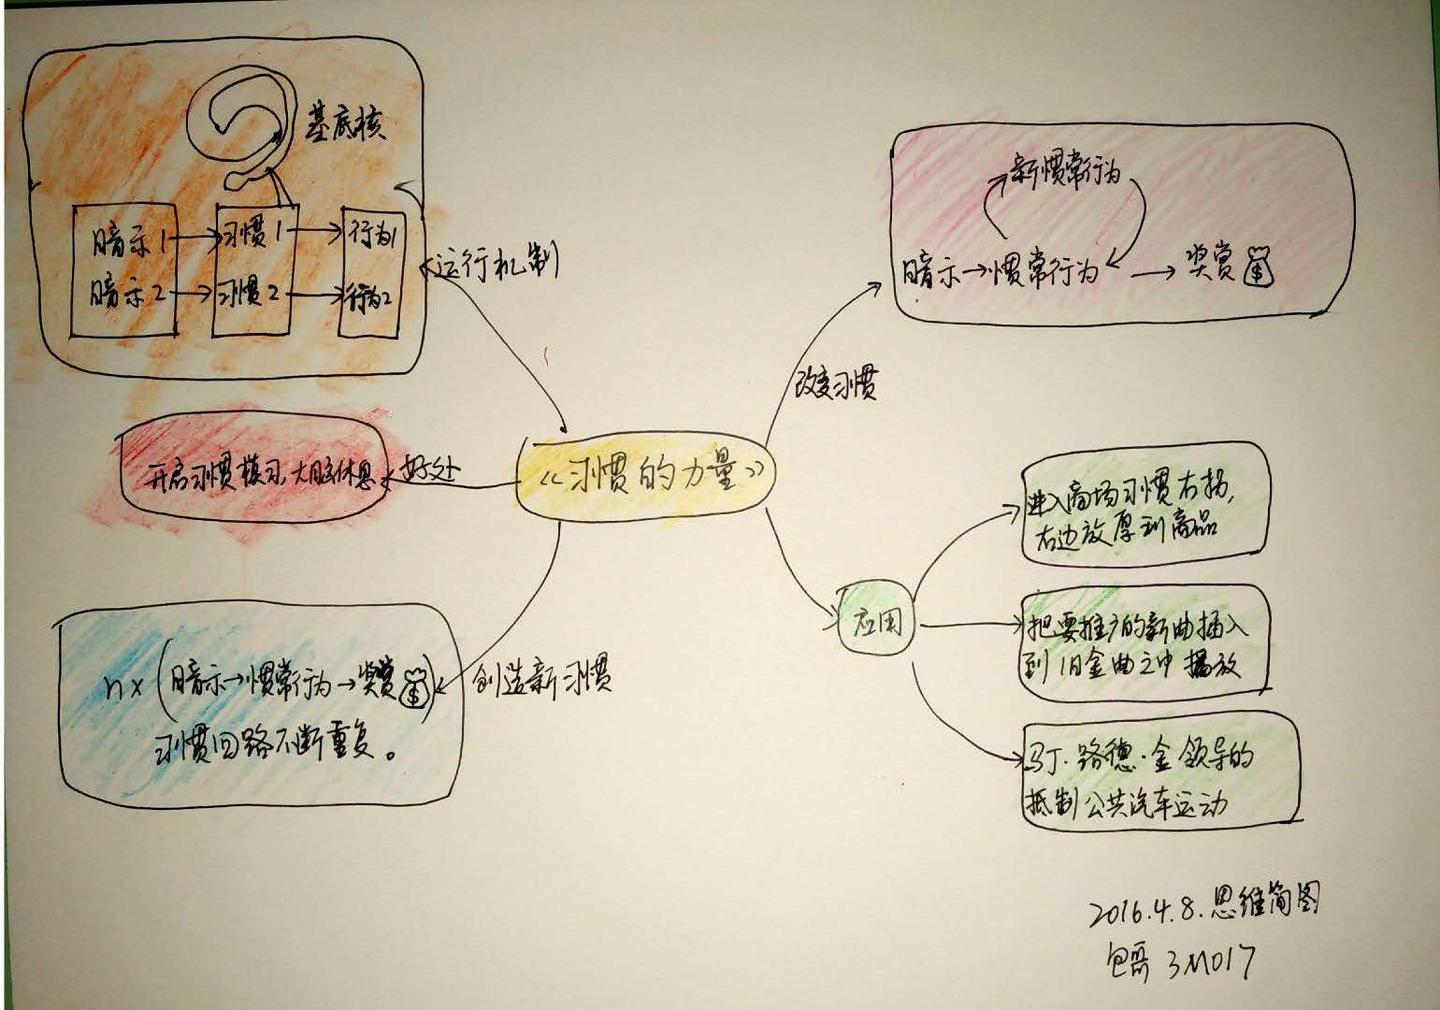 基底核
暗示1 习惯1 行为1
暗示2 习惯2 行为2
运行机制
新惯常行为
暗示→惯常行为→奖赏
改变习惯
开启习惯模式,大脑休息
好处
《习惯的力量》
进入商场习惯右拐,
右边放厚利商品
应用
把要推广的新曲插入
到旧金曲之中播放
n×(暗示→惯常行为→奖赏)
习惯回路不断重复。
创造新习惯
马丁·路德·金领导的
抵制公共汽车运动
2016.4.8.思维简图
包哥 3M017